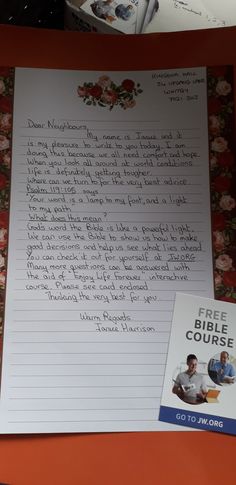 KINGDOM HALL
WHITBY
Dear Neighbours
My name is Janice and it
is my pleasure to write to you today. I am
doing this because we all need comfort and hope.
When you look all around at world conditions
life is definitely getting tougher.
Where can we turn to for the very best advice
Psalm 119:105 says
Your word is a lamp to my foot, and a light
to my path.
What does this mean?
Gods word the Bible is like a powerful light.
We can use the Bible to show us how to make
good decisions and help us see what lies ahead
You can check it out for yourself at JW.ORG
Many more questions can be answered with
the aid of Enjoy Life Forever interactive
course. Please see card enclosed
Thinking the very best for you
Warm Regards
Janice Harrison
FREE
BIBLE
COURSE
GO TO JW.ORG